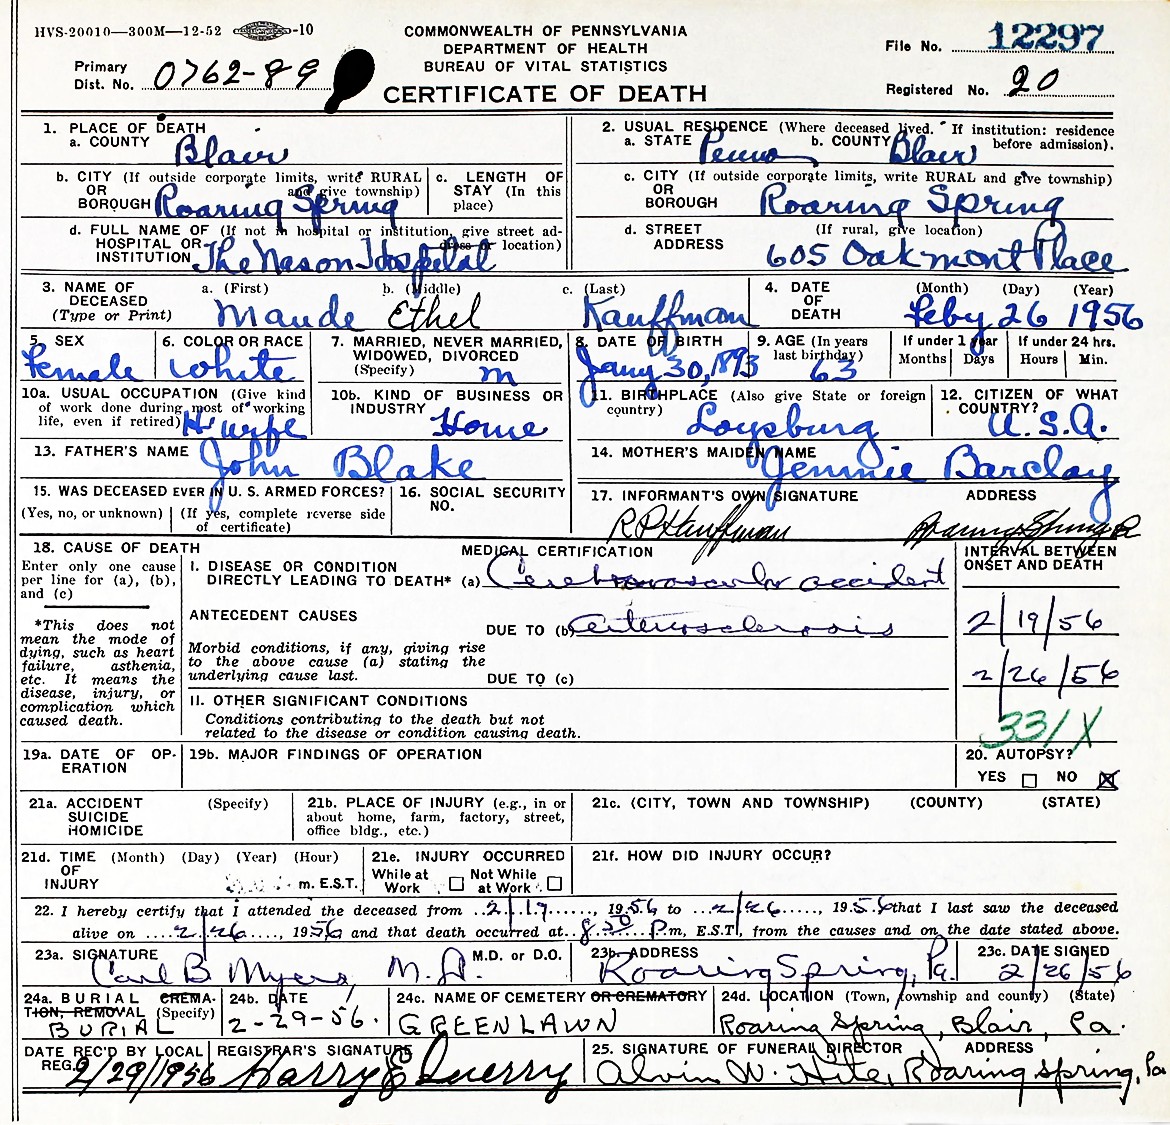 HVS-20010—300M—12-52 -10
COMMONWEALTH OF PENNSYLVANIA
DEPARTMENT OF HEALTH
BUREAU OF VITAL STATISTICS
CERTIFICATE OF DEATH
File No. 12297
Primary Dist. No. 0762-89
Registered No. 20
1. PLACE OF DEATH
a. COUNTY Blair
2. USUAL RESIDENCE (Where deceased lived. If institution: residence before admission).
a. STATE Penna b. COUNTY Blair
b. CITY (If outside corporate limits, write RURAL and give township) OR BOROUGH Roaring Spring
c. LENGTH OF STAY (In this place)
c. CITY (If outside corporate limits, write RURAL and give township) OR BOROUGH Roaring Spring
d. FULL NAME OF (If not in hospital or institution, give street address or location) HOSPITAL OR INSTITUTION The Nason Hospital
d. STREET ADDRESS (If rural, give location) 605 Oakmont Place
3. NAME OF DECEASED (Type or Print)
a. (First) Maude b. (Middle) Ethel c. (Last) Kauffman
4. DATE OF DEATH (Month) (Day) (Year) Feby 26 1956
5. SEX Female
6. COLOR OR RACE White
7. MARRIED, NEVER MARRIED, WIDOWED, DIVORCED (Specify) m
8. DATE OF BIRTH Jany 30, 1893
9. AGE (In years last birthday) 63
If under 1 year Months Days
If under 24 hrs. Hours Min.
10a. USUAL OCCUPATION (Give kind of work done during most of working life, even if retired) H wife
10b. KIND OF BUSINESS OR INDUSTRY Home
11. BIRTHPLACE (Also give State or foreign country) Loysburg
12. CITIZEN OF WHAT COUNTRY? U.S.A.
13. FATHER'S NAME John Blake
14. MOTHER'S MAIDEN NAME Jennie Barclay
15. WAS DECEASED EVER IN U. S. ARMED FORCES?
(Yes, no, or unknown) (If yes, complete reverse side of certificate)
16. SOCIAL SECURITY NO.
17. INFORMANT'S OWN SIGNATURE ADDRESS
R P Kauffman Roaring Spring Pa
18. CAUSE OF DEATH
Enter only one cause per line for (a), (b), and (c)
*This does not mean the mode of dying, such as heart failure, asthenia, etc. It means the disease, injury, or complication which caused death.
MEDICAL CERTIFICATION
I. DISEASE OR CONDITION DIRECTLY LEADING TO DEATH* (a) Cerebrovascular accident
ANTECEDENT CAUSES
DUE TO (b) arteriosclerosis
Morbid conditions, if any, giving rise to the above cause (a) stating the underlying cause last.
DUE TO (c)
II. OTHER SIGNIFICANT CONDITIONS
Conditions contributing to the death but not related to the disease or condition causing death.
INTERVAL BETWEEN ONSET AND DEATH
2/19/56
2/26/56
331X
19a. DATE OF OPERATION
19b. MAJOR FINDINGS OF OPERATION
20. AUTOPSY?
YES NO
21a. ACCIDENT SUICIDE HOMICIDE (Specify)
21b. PLACE OF INJURY (e.g., in or about home, farm, factory, street, office bldg., etc.)
21c. (CITY, TOWN AND TOWNSHIP) (COUNTY) (STATE)
21d. TIME OF INJURY (Month) (Day) (Year) (Hour) m. E.S.T.
21e. INJURY OCCURRED
While at Work Not While at Work
21f. HOW DID INJURY OCCUR?
22. I hereby certify that I attended the deceased from 2/17, 1956 to 2/26, 1956 that I last saw the deceased
alive on 2/26, 1956 and that death occurred at 8:30 P.m, E.S.T, from the causes and on the date stated above.
23a. SIGNATURE M.D. or D.O.
Carl B Myers, M.D.
23b. ADDRESS Roaring Spring, Pa.
23c. DATE SIGNED 2/26/56
24a. BURIAL CREMATION, REMOVAL (Specify) BURIAL
24b. DATE 2-29-56.
24c. NAME OF CEMETERY OR CREMATORY GREENLAWN
24d. LOCATION (Town, township and county) (State)
Roaring Spring, Blair, Pa.
DATE REC'D BY LOCAL REG. 2/29/1956
REGISTRAR'S SIGNATURE Harry E Querry
25. SIGNATURE OF FUNERAL DIRECTOR ADDRESS
Alvin W. Hite, Roaring Spring, Pa